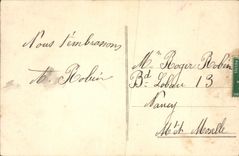 Nous t'embrassons
M. Robin
Mr Roger Robin
Bd Lobau 13
Nancy
Mthe Moselle